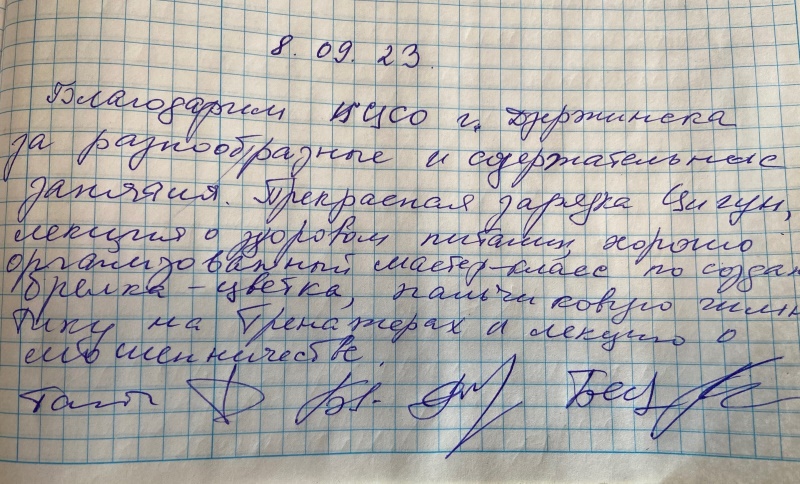 8. 09. 23.
Благодарим ЦЦСО г. Дзержинска
за разнообразные и содержательные
занятия. Прекрасная зарядка Цигун,
лекция о здоровом питании, хорошо
организованный мастер-класс по создан
брелка-цветка, пальчиковую гимн
тику на тренажерах и лекцию о
мошенничестве.